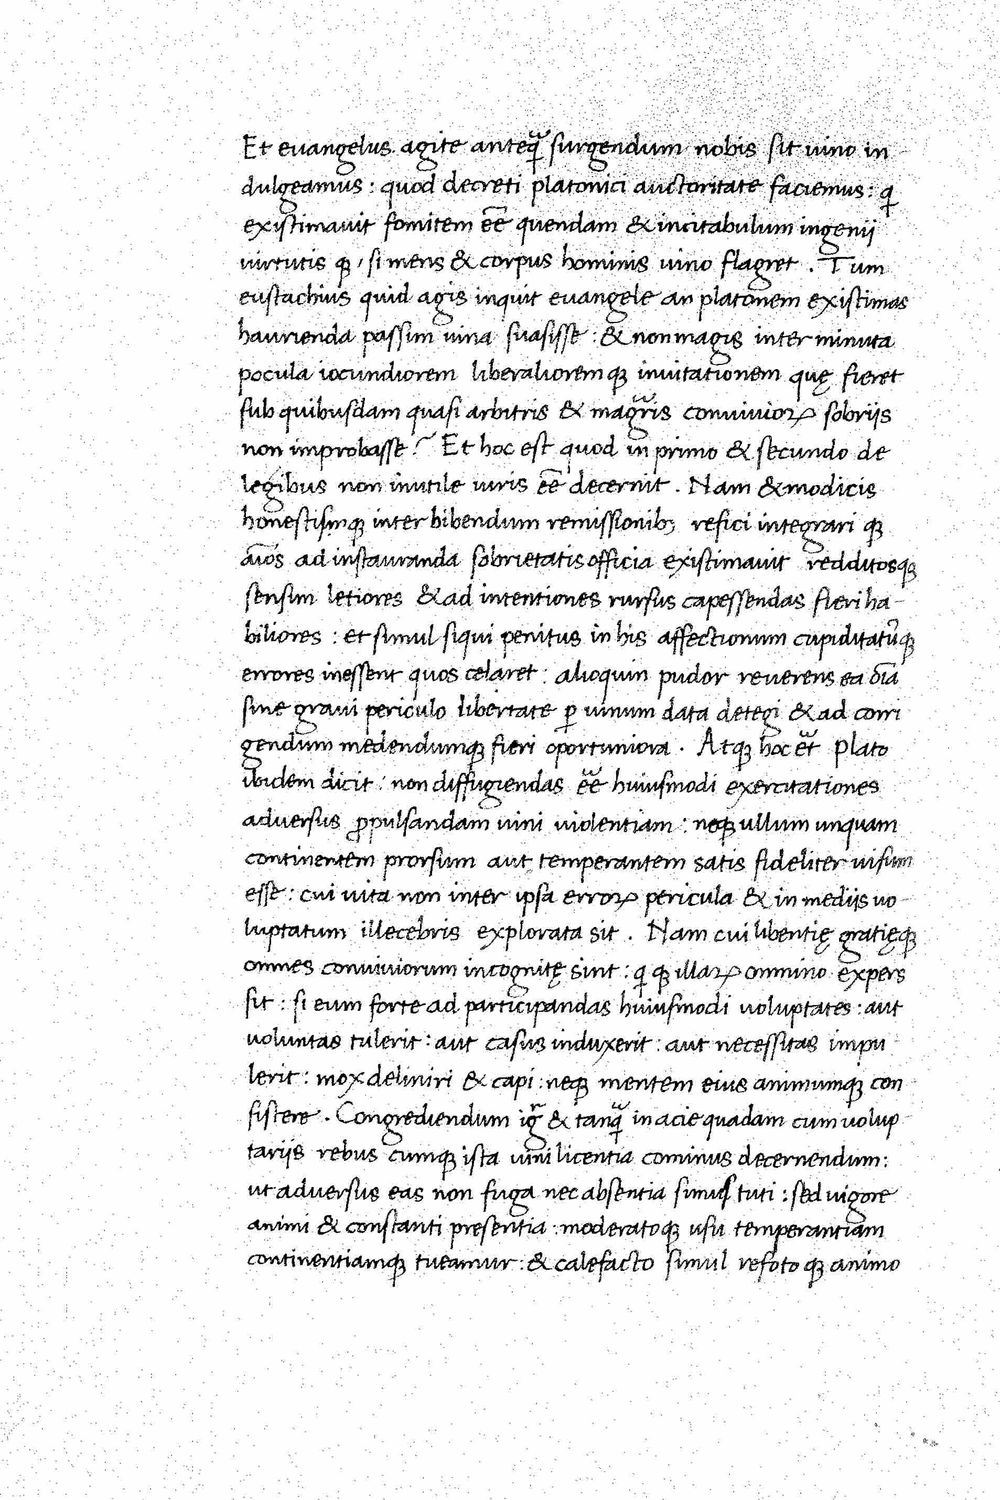 Et euangelus agite anteq̃ surgendum nobis sit uino in
dulgeamus : quod decreti platonici auctoritate faciemus : qi
existimauit fomitem eē quendam & incitabulum ingenii
uirtutis q; , si mens & corpus hominis uino flagret . Tum
eustachius quid agis inquit euangele an platonem existimas
haurienda passim uina suasisse : & non magis inter minuta
pocula iocundiorem liberaliorem q; inuitationem quę fieret
sub quibusdam quasi arbitris & magr̃is conuiuioꝝ sobriis
non improbasse ? Et hoc est quod in primo & secundo de
legibus non inutile uiris eē decernit . Nam & modicis
honestisq; inter bibendum remissionib; refici integrari q;
aīos ad instauranda sobrietatis officia existimauit redditosq;
sensim letiores & ad intentiones rursus capessendas fieri ha-
biliores : et simul siqui penitus in his affectionum cupiditatūq;
errores inessent quos celaret : alioquin pudor reuerens ea oīa
sine graui periculo libertate ꝑ uinum data detegi & ad corri
gendum medendumq; fieri oportuniora . Atq; hoc et̃ plato
ibidem dicit : non diffugiendas eē huiusmodi exercitationes
aduersus ꝓpulsandam uini uiolentiam : neq; ullum unquam
continentem prorsum aut temperantem satis fideliter uisum
esse : cui uita non inter ipsa erroꝝ pericula & in mediis uo-
luptatum illecebris explorata sit . Nam cui libentię gratięq;
omnes conuiuiorum incognitę sint : qi q; illaꝝ omnino expers
sit : si eum forte ad participandas huiusmodi uoluptates : aut
uoluntas tulerit : aut casus induxerit : aut necessitas impu
lerit : mox deliniri & capi : neq; mentem eius animumq; con
sistere . Congrediendum igr̃ & tanq̃ in acie quadam cum uolup
tariis rebus cumq; ista uini licentia cominus decernendum :
ut aduersus eas non fuga nec absentia simus tuti : sed uigore
animi & constanti presentia : moderatoq; usu temperantiam
continentiamq; tueamur : & calefacto simul refoto q; animo